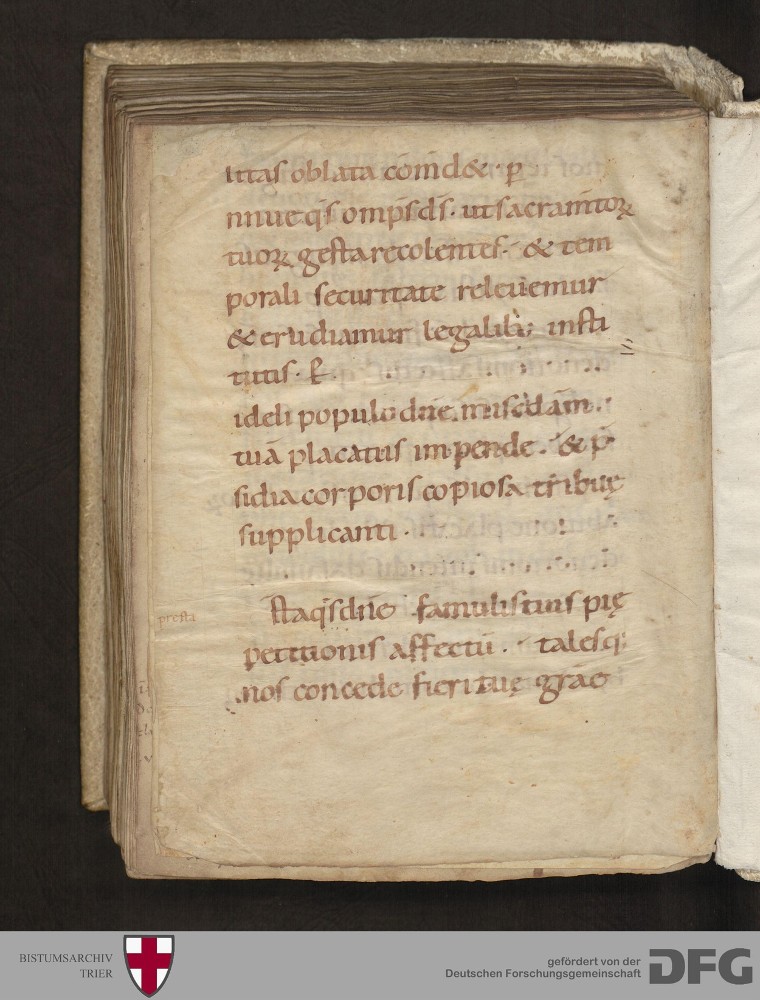 uitas oblata com̄d&. p̄
niue q̄s om̄ps d̄s. ut sacram̄toꝝ
tuoꝝ gesta recolentes. & tem
porali securitate releuemur
& erudiamur legalib; insti
tutis. 
ideli populo dn̄e mis̄c̄dam.
tuā placatus impende. & p̄
sidia corporis copiosa tribuę
supplicanti.
staq̄s dn̄e famulis tuis pię
petitionis affectū. talesq;
nos concede fieri tuę gr̄ae
presta
BISTUMSARCHIV
TRIER
gefördert von der
Deutschen Forschungsgemeinschaft
DFG